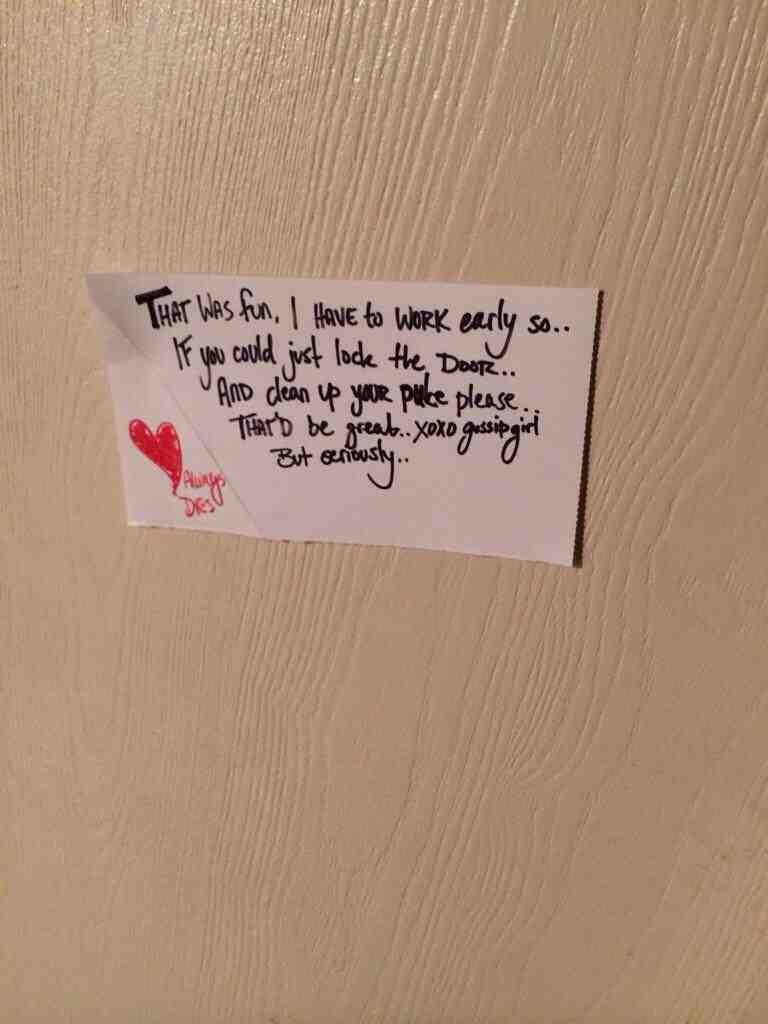 THAT WAS fun, I HAVE to WORK early so..
IF you could just lock the DOOR..
AND clean up your puke please..
THAT'D be great.. XOXO gossip girl
But seriously..
Always
Dres